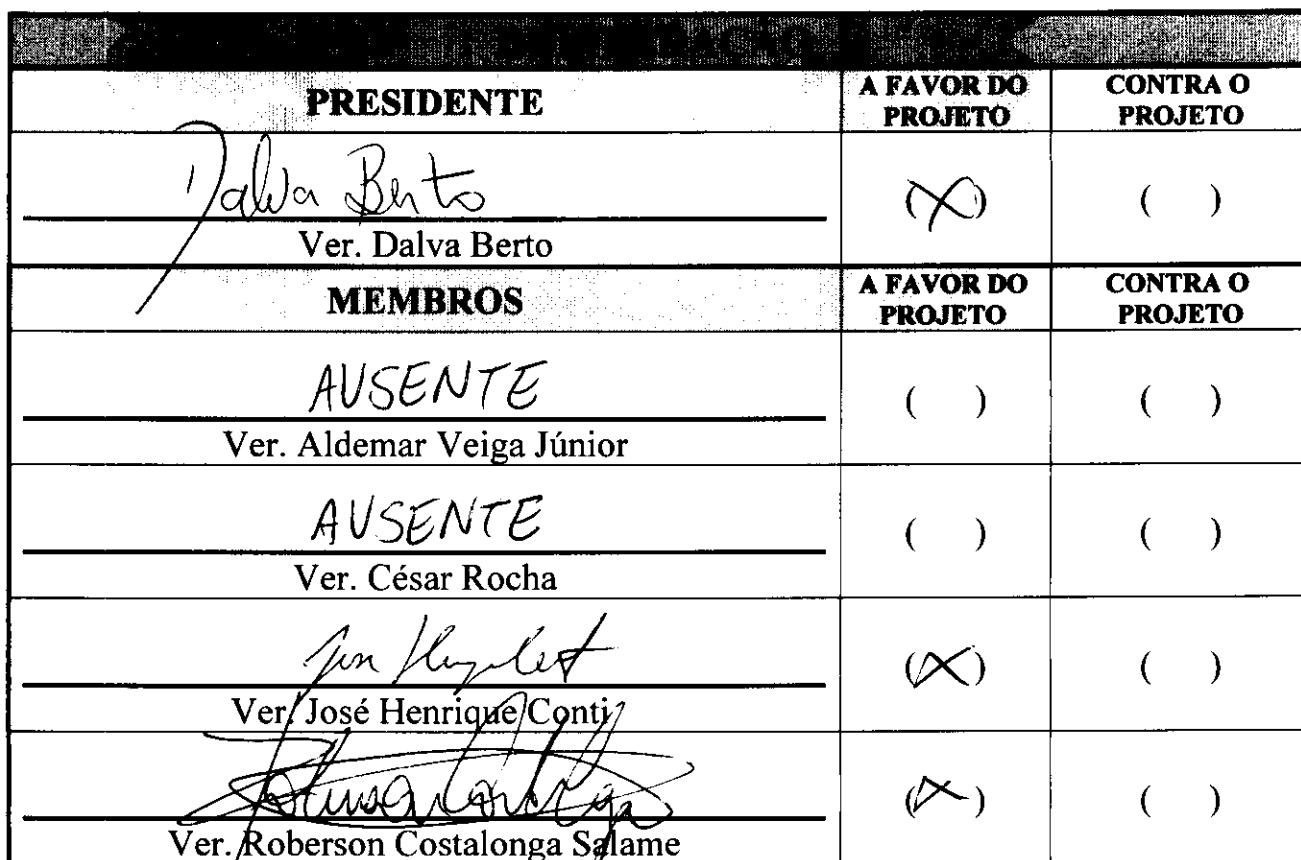 PRESIDENTE
A FAVOR DO PROJETO
CONTRA O PROJETO
Dalva Berto
(X)
( )
Ver. Dalva Berto
MEMBROS
A FAVOR DO PROJETO
CONTRA O PROJETO
AUSENTE
( )
( )
Ver. Aldemar Veiga Júnior
AUSENTE
( )
( )
Ver. César Rocha
(X)
( )
Ver. José Henrique Conti
(X)
( )
Ver. Roberson Costalonga Salame